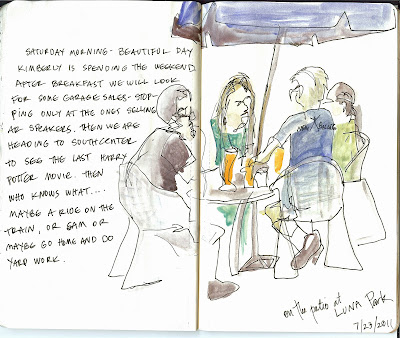 SATURDAY MORNING - BEAUTIFUL DAY
KIMBERLY IS SPENDING THE WEEKEND
AFTER BREAKFAST WE WILL LOOK
FOR SOME GARAGE SALES - STOP-
PING ONLY AT THE ONES SELLING
AR SPEAKERS. THEN WE ARE
HEADING TO SOUTHCENTER
TO SEE THE LAST HARRY
POTTER MOVIE. THEN
WHO KNOWS WHAT....
MAYBE A RIDE ON THE
TRAIN, OR SAM OR
MAYBE GO HOME AND DO
YARD WORK.
on the patio at
LUNA Park
7/23/2011